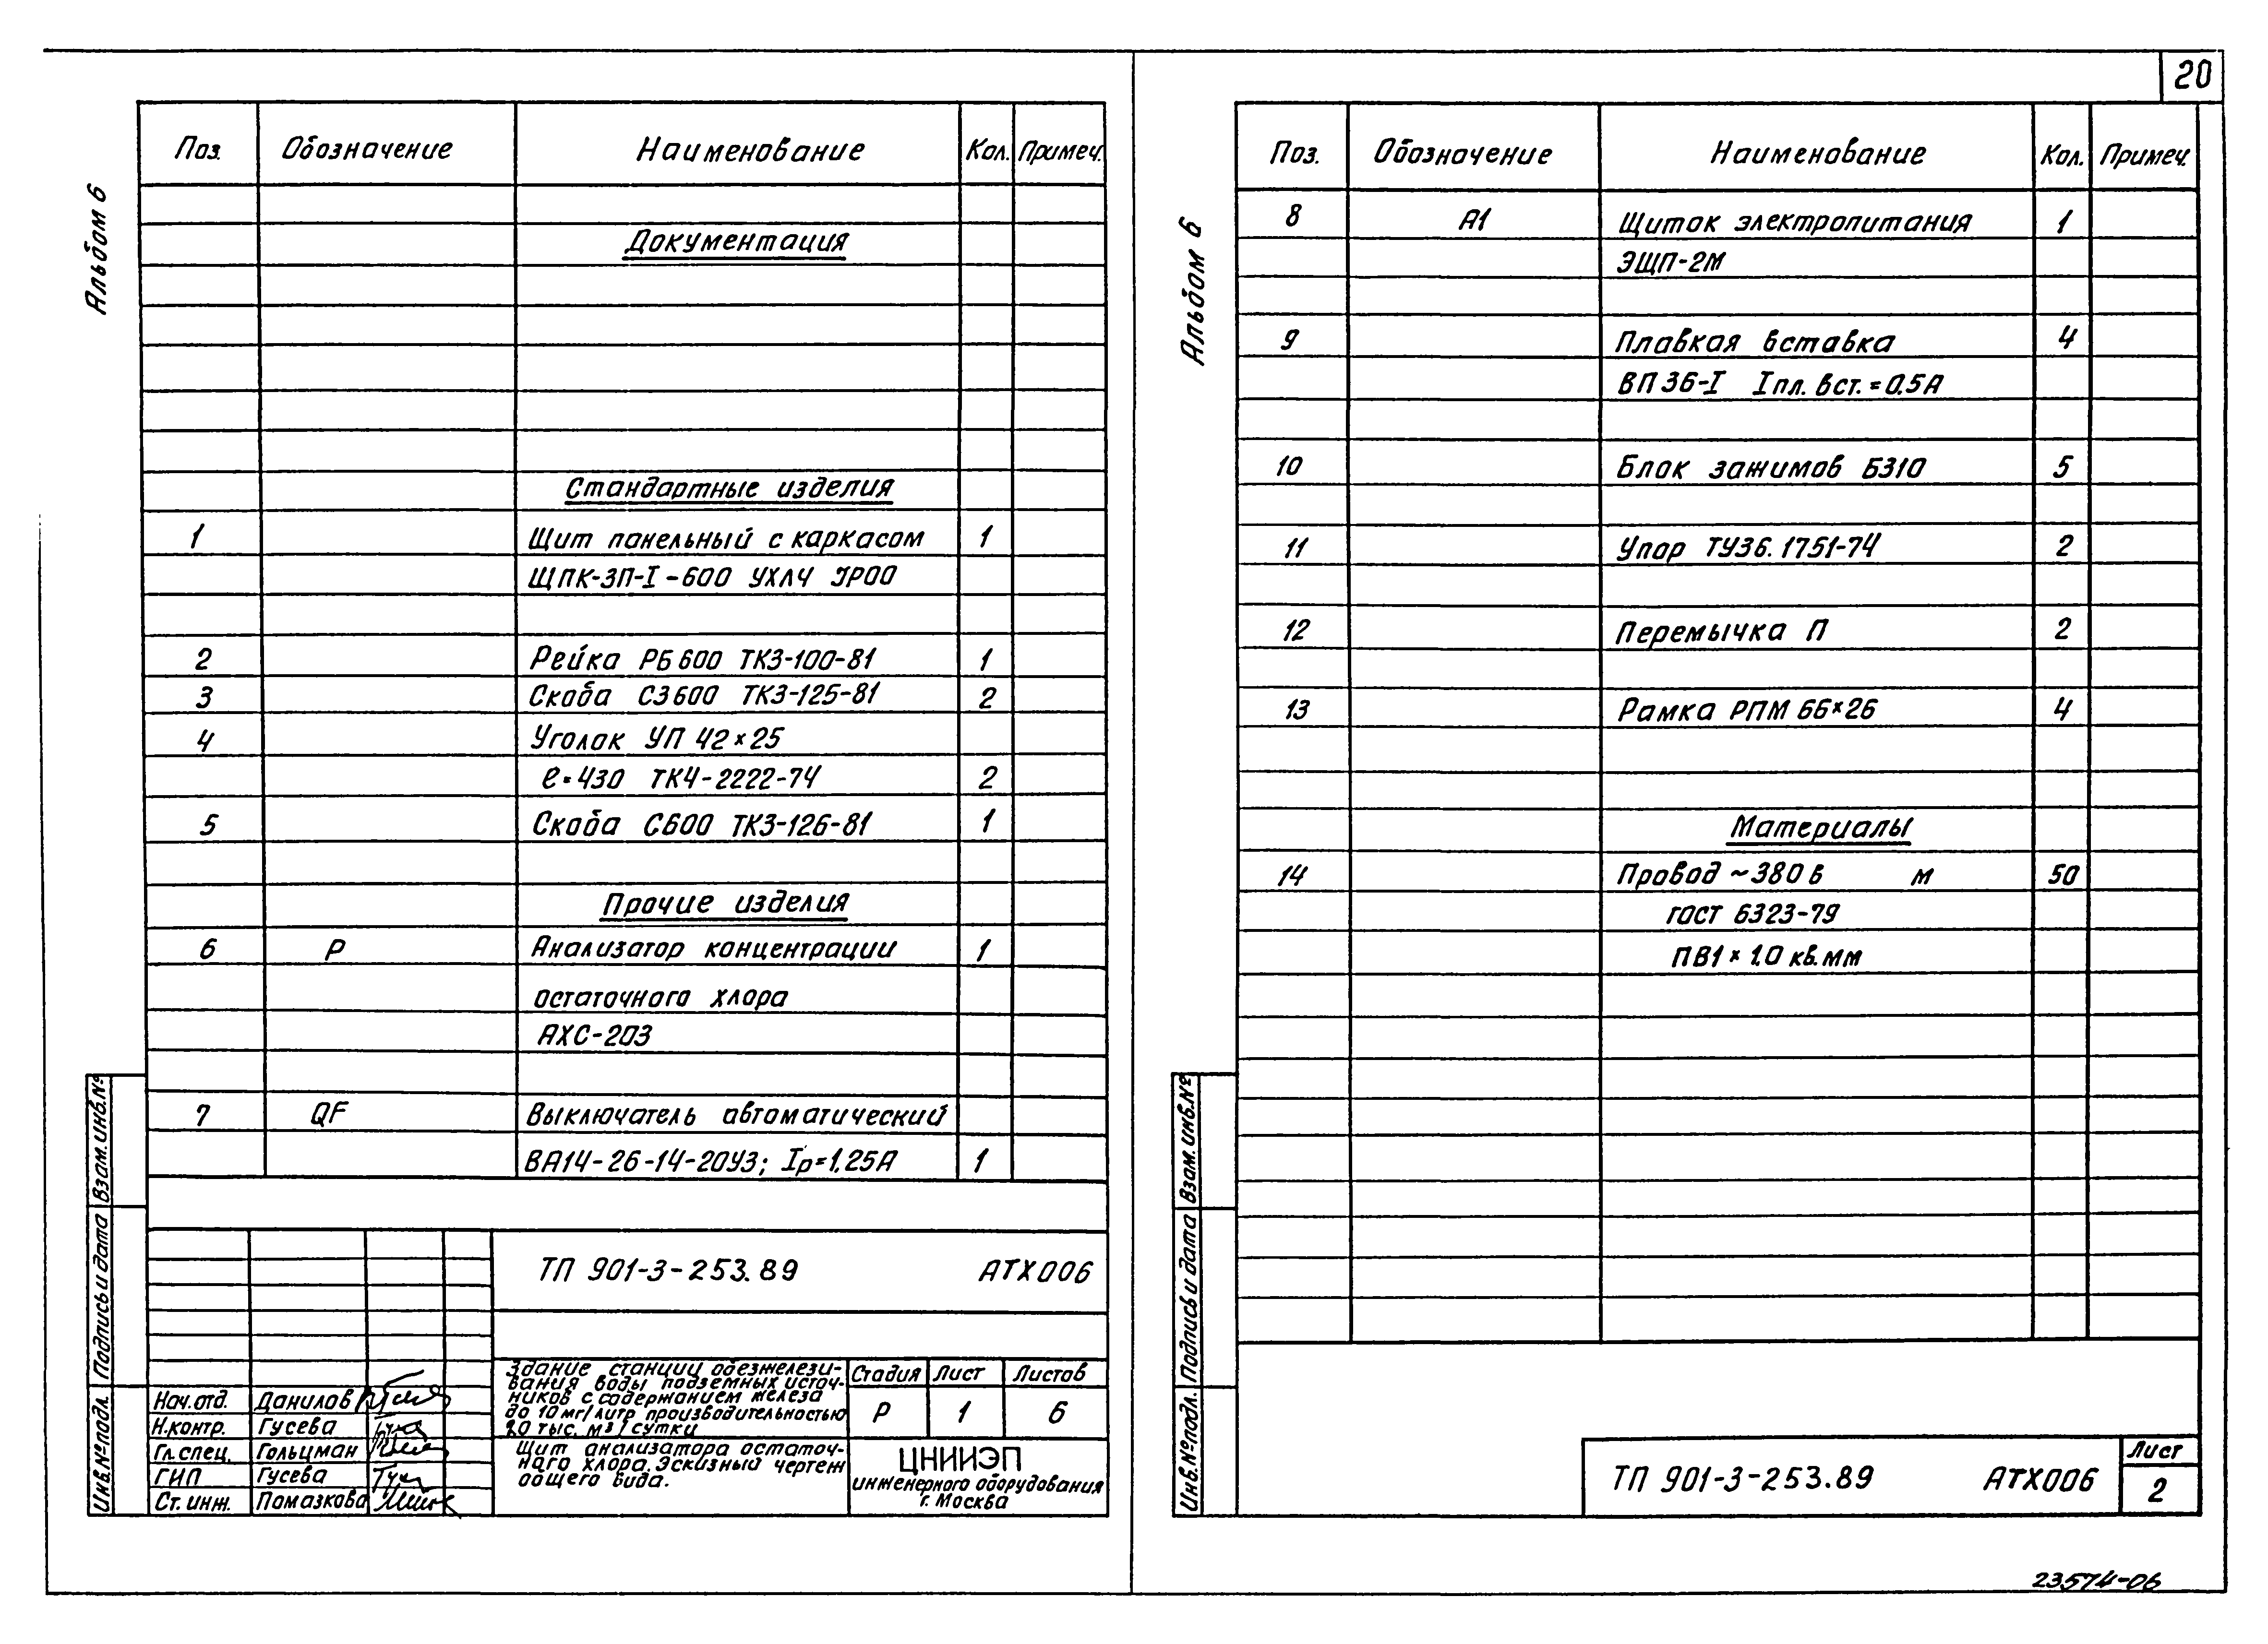 20
Альбом 6
Поз. Обозначение Наименование Кол. Примеч.
Документация
Стандартные изделия
1 Щит панельный с каркасом 1
ЩПК-ЗП-I-600 УХЛ4 IP00
2 Рейка РБ600 ТК3-100-81 1
3 Скоба С3600 ТК3-125-81 2
4 Уголок УП 42×25
ℓ=430 ТК4-2222-74 2
5 Скоба С600 ТК3-126-81 1
Прочие изделия
6 Р Анализатор концентрации 1
остаточного хлора
АХС-203
7 QF Выключатель автоматический
ВА14-26-14-20У3; Iр=1,25А 1
ТП 901-3-253.89 АТХ006
Здание станции обезжелези-
вания воды подземных источ-
ников с содержанием железа
до 10мг/литр производительностью
20 тыс. м³/сутки
Стадия Лист Листов
Р 1 6
Нач.отд. Данилов
Н.контр. Гусева
Гл.спец. Гольцман
ГИП Гусева
Ст.инж. Помазкова
Щит анализатора остаточ-
ного хлора. Эскизный чертеж
общего вида.
ЦНИИЭП
инженерного оборудования
г. Москва
Инв.№подл. Подпись и дата Взам.инв.№
Альбом 6
Поз. Обозначение Наименование Кол. Примеч.
8 А1 Щиток электропитания 1
ЭЩП-2М
9 Плавкая вставка 4
ВП36-I Iпл.вст.=0.5А
10 Блок зажимов Б310 5
11 Упор ТУ36.1751-74 2
12 Перемычка П 2
13 Рамка РПМ 66×26 4
Материалы
14 Провод ~380В м 50
ГОСТ 6323-79
ПВ1×1.0 кв.мм
Инв.№подл. Подпись и дата Взам.инв.№
ТП 901-3-253.89 АТХ006
Лист
2
23574-06